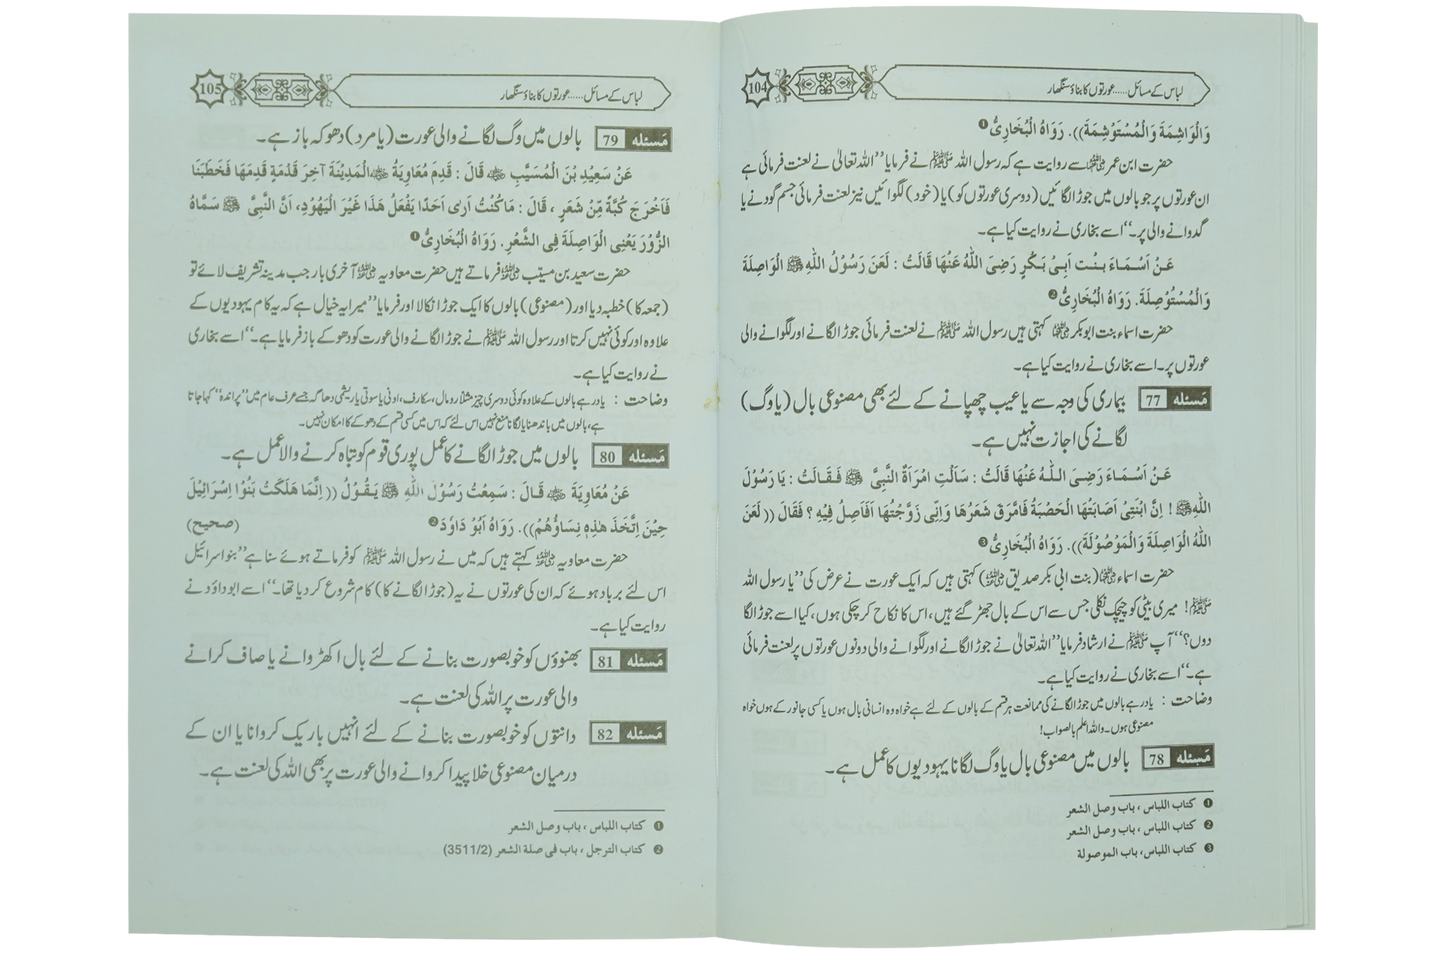 لباس کے مسائل.....عورتوں کا بناؤ سنگھار
104
وَالْوَاشِمَةَ وَالْمُسْتَوْشِمَةَ)). رَوَاهُ الْبُخَارِیُّ❶
حضرت ابن عمر سے روایت ہے کہ رسول اللہ ﷺ نے فرمایا ’’اللہ تعالیٰ نے لعنت فرمائی ہے
ان عورتوں پر جو بالوں میں جوڑا لگائیں (دوسری عورتوں کو) یا (خود) لگوائیں نیز لعنت فرمائی جسم گودنے یا
گدوانے والی پر۔‘‘ اسے بخاری نے روایت کیا ہے۔
عَنْ اَسْمَاءَ بِنْتِ اَبِیْ بَکْرٍ رَضِیَ اللّٰہُ عَنْهَا قَالَتْ : لَعَنَ رَسُوْلُ اللّٰہِ ﷺ الْوَاصِلَةَ
وَالْمُسْتَوْصِلَةَ. رَوَاهُ الْبُخَارِیُّ❷
حضرت اسماء بنت ابوبکر رضی اللہ عنہا کہتی ہیں رسول اللہ ﷺ نے لعنت فرمائی جوڑا لگانے اور لگوانے والی
عورتوں پر۔ اسے بخاری نے روایت کیا ہے۔
مَسئله 77 بیماری کی وجہ سے یا عیب چھپانے کے لئے بھی مصنوعی بال (یا وگ)
لگانے کی اجازت نہیں ہے۔
عَنْ اَسْمَاءَ رَضِیَ اللّٰہُ عَنْهَا قَالَتْ : سَاَلَتِ امْرَاَةٌ النَّبِیَّ ﷺ فَقَالَتْ : یَا رَسُوْلَ
اللّٰہِ ﷺ ! اِنَّ ابْنَتِیْ اَصَابَتْهَا الْحَصْبَةُ فَامَّرَقَ شَعَرُهَا وَاِنِّی زَوَّجْتُهَا اَفَاَصِلُ فِیْهِ ؟ فَقَالَ ((لَعَنَ
اللّٰہُ الْوَاصِلَةَ وَالْمَوْصُوْلَةَ)). رَوَاهُ الْبُخَارِیُّ❸
حضرت اسماء رضی اللہ عنہا (بنت ابی بکر صدیق رضی اللہ عنہ) کہتی ہیں کہ ایک عورت نے عرض کی ’’یا رسول اللہ
ﷺ! میری بیٹی کو چیچک نکلی جس سے اس کے بال جھڑ گئے ہیں، اس کا نکاح کر چکی ہوں، کیا اسے جوڑا لگا
دوں؟‘‘ آپ ﷺ نے ارشاد فرمایا ’’اللہ تعالیٰ نے جوڑا لگانے اور لگوانے والی دونوں عورتوں پر لعنت فرمائی
ہے۔‘‘ اسے بخاری نے روایت کیا ہے۔
وضاحت : یاد رہے بالوں میں جوڑا لگانے کی ممانعت ہر قسم کے بالوں کے لئے ہے خواہ وہ انسانی بال ہوں یا کسی جانور کے ہوں خواہ
مصنوعی ہوں۔ واللہ اعلم بالصواب!
مَسئله 78 بالوں میں مصنوعی بال یا وگ لگانا یہودیوں کا عمل ہے۔
❶ کتاب اللباس ، باب وصل الشعر
❷ کتاب اللباس ، باب وصل الشعر
❸ کتاب اللباس، باب الموصولة
لباس کے مسائل.....عورتوں کا بناؤ سنگھار
105
مَسئله 79 بالوں میں وگ لگانے والی عورت (یا مرد) دھوکہ باز ہے۔
عَنْ سَعِیْدِ بْنِ الْمُسَیَّبِ قَالَ : قَدِمَ مُعَاوِیَةُ الْمَدِیْنَةَ آخِرَ قَدْمَةٍ قَدِمَهَا فَخَطَبَنَا
فَاَخْرَجَ کُبَّةً مِّنْ شَعَرٍ ، قَالَ : مَا کُنْتُ اَرٰی اَحَدًا یَفْعَلُ هٰذَا غَیْرَ الْیَهُوْدِ، اَنَّ النَّبِیَّ ﷺ سَمَّاهُ
الزُّوْرَ یَعْنِی الْوَاصِلَةَ فِی الشَّعْرِ. رَوَاهُ الْبُخَارِیُّ❶
حضرت سعید بن مسیب فرماتے ہیں حضرت معاویہ آخری بار جب مدینہ تشریف لائے تو
(جمعہ کا) خطبہ دیا اور (مصنوعی) بالوں کا ایک جوڑا نکالا اور فرمایا ’’میرا یہ خیال ہے کہ یہ کام یہودیوں کے
علاوہ اور کوئی نہیں کرتا اور رسول اللہ ﷺ نے جوڑا لگانے والی عورت کو دھوکے باز فرمایا ہے۔‘‘ اسے بخاری
نے روایت کیا ہے۔
وضاحت : یاد رہے بالوں کے علاوہ کوئی دوسری چیز مثلاً رومال، سکارف، اونی یا سوتی یا ریشمی دھاگہ جسے عرف عام میں ’’پراندہ‘‘ کہا جاتا
ہے، بالوں میں باندھنا یا لگانا منع نہیں اس لئے کہ اس میں کسی قسم کے دھوکے کا امکان نہیں۔
مَسئله 80 بالوں میں جوڑا لگانے کا عمل پوری قوم کو تباہ کرنے والا عمل ہے۔
عَنْ مُعَاوِیَةَ قَالَ : سَمِعْتُ رَسُوْلَ اللّٰہِ ﷺ یَقُوْلُ ((اِنَّمَا هَلَکَتْ بَنُوْا اِسْرَائِیْلَ
حِیْنَ اتَّخَذَ هٰذِهٖ نِسَاؤُهُمْ)). رَوَاهُ اَبُوْ دَاوٗدَ❷ (صحیح)
حضرت معاویہ کہتے ہیں کہ میں نے رسول اللہ ﷺ کو فرماتے ہوئے سنا ہے ’’بنو اسرائیل
اس لئے برباد ہوئے کہ ان کی عورتوں نے یہ (جوڑا لگانے کا) کام شروع کر دیا تھا۔‘‘ اسے ابوداؤد نے
روایت کیا ہے۔
مَسئله 81 بھنوؤں کو خوبصورت بنانے کے لئے بال اکھڑوانے یا صاف کرانے
والی عورت پر اللہ کی لعنت ہے۔
مَسئله 82 دانتوں کو خوبصورت بنانے کے لئے انہیں باریک کروانا یا ان کے
درمیان مصنوعی خلا پیدا کروانے والی عورت پر بھی اللہ کی لعنت ہے۔
❶ کتاب اللباس ، باب وصل الشعر
❷ کتاب الترجل ، باب فی صلة الشعر (3511/2)